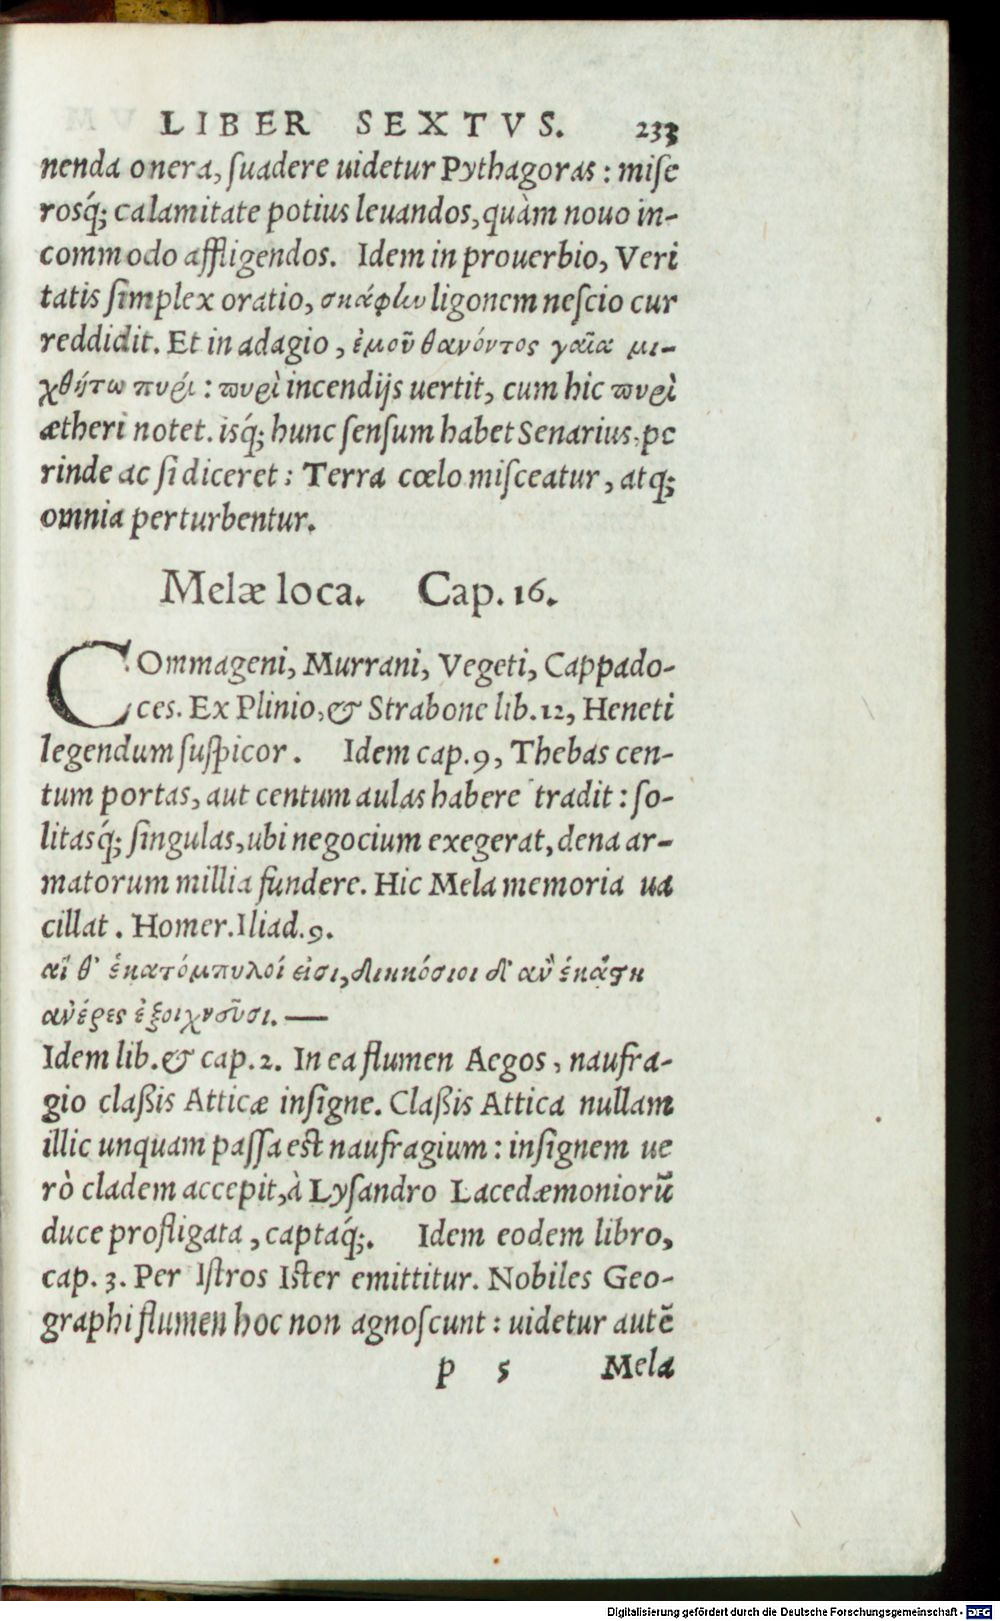 LIBER SEXTVS. 233
nenda onera, ſuadere uidetur Pythagoras: miſe
rosq́; calamitate potius leuandos, quàm nouo in-
commodo affligendos. Idem in prouerbio, Veri
tatis ſimplex oratio, σκάφην ligonem neſcio cur
reddidit. Et in adagio, ἐμοῦ θανόντος γαῖα μι-
χθήτω πυρί: πυρὶ incendijs uertit, cum hic πυρὶ
ætheri notet. isq́; hunc ſenſum habet Senarius, pe
rinde ac ſi diceret: Terra cœlo miſceatur, atq;
omnia perturbentur.
Melæ loca. Cap. 16.
COmmageni, Murrani, Vegeti, Cappado-
ces. Ex Plinio, & Strabone lib. 12, Heneti
legendum ſuſpicor. Idem cap. 9, Thebas cen-
tum portas, aut centum aulas habere tradit: ſo-
litasq́; ſingulas, ubi negocium exegerat, dena ar-
matorum millia fundere. Hic Mela memoria ua
cillat. Homer. Iliad. 9.
αἵ θ' ἑκατόμπυλοί εἰσι, διηκόσιοι δ' ἀν' ἑκάστη
ἀνέρες ἐξοιχνοῦσι. —
Idem lib. & cap. 2. In ea flumen Aegos, naufra-
gio claßis Atticæ inſigne. Claßis Attica nullam
illic unquam paſſa eſt naufragium: inſignem ue
rò cladem accepit, à Lyſandro Lacedæmoniorũ
duce profligata, captaq́;. Idem eodem libro,
cap. 3. Per Iſtros Iſter emittitur. Nobiles Geo-
graphi flumen hoc non agnoſcunt: uidetur autẽ
p 5 Mela
Digitalisierung gefördert durch die Deutsche Forschungsgemeinschaft - DFG